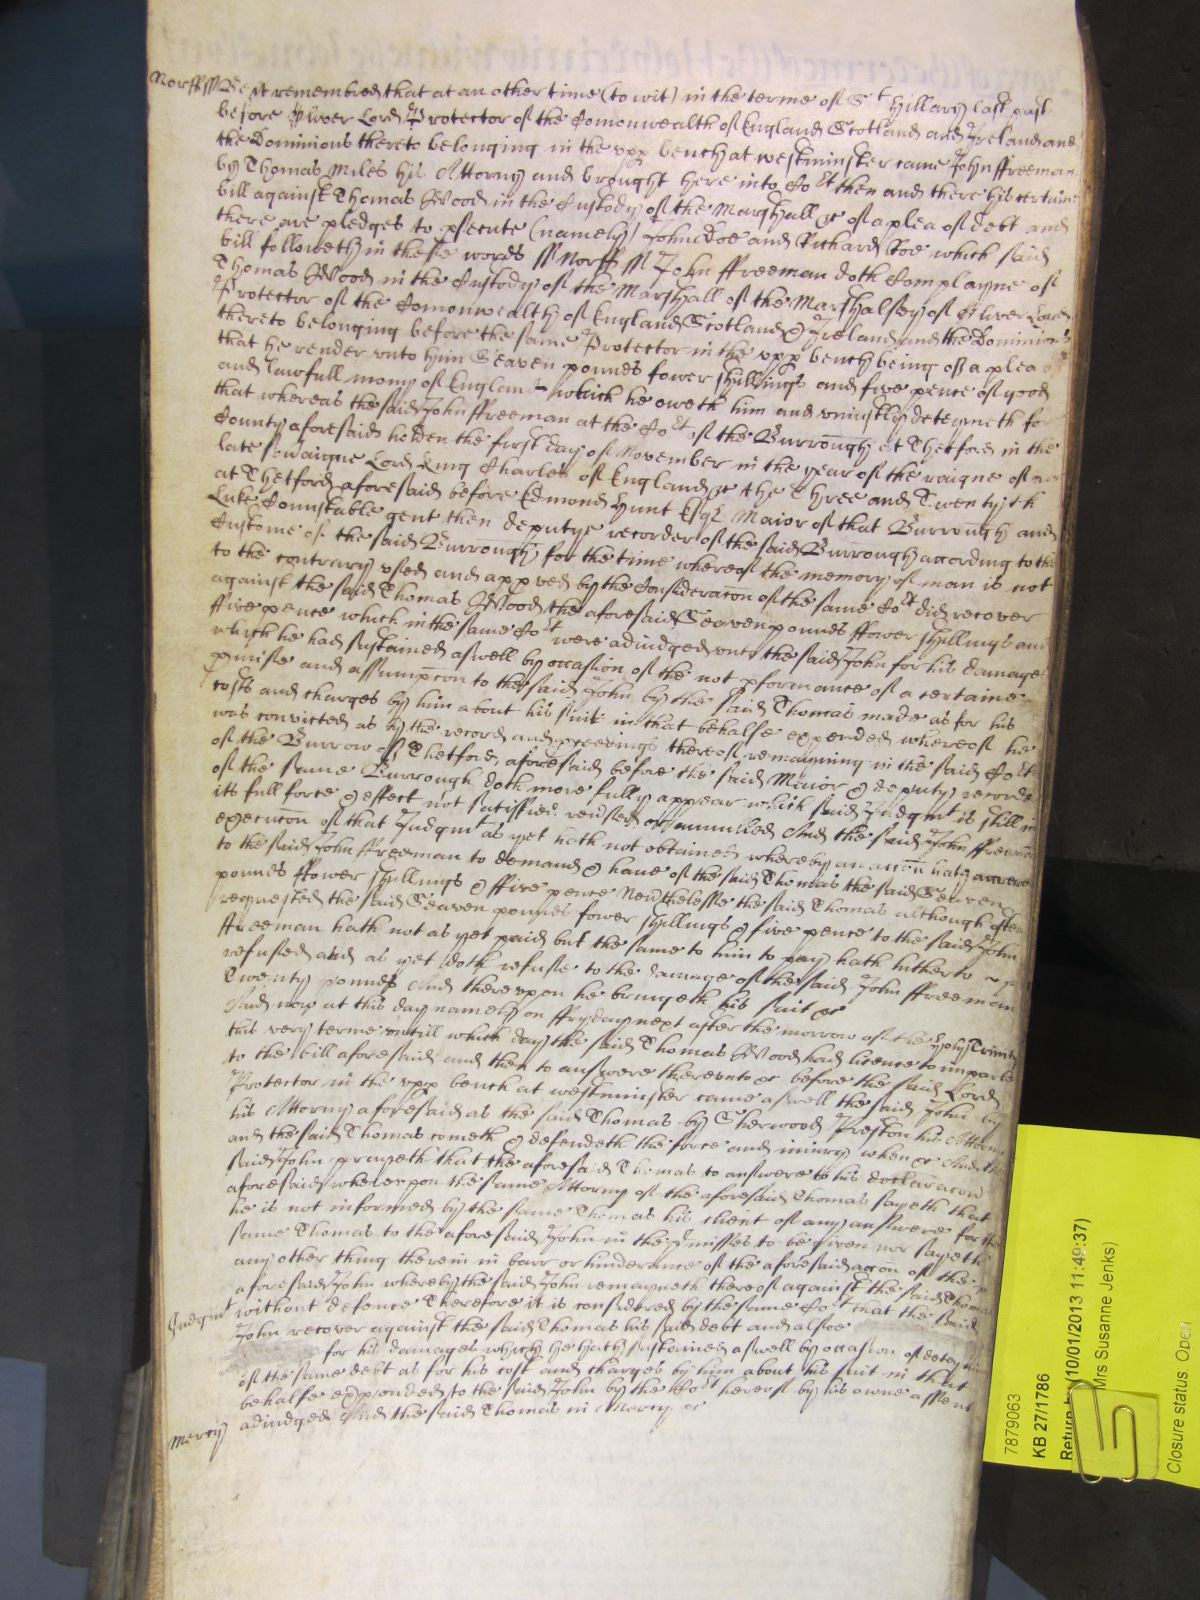 Norff ss Be it remembred that at an other time (to wit) in the terme of St Hillary last past
before Oliver Lord Protector of the Comonwealth of England Scotland and Ireland and
the Dominions thereto belonging in the upp bench at westminster came John ffreeman
by Thomas Miles his Attorny and brought here into Cort then and there his certaine
bill against Thomas Wood in the Custody of the Marshall &c of a plea of debt and
there are pledges to psecute (namely) John Doe and Richard Roe which said
bill followeth in these words ss Norff ss John ffreeman doth Complayne of
Thomas Wood in the Custody of the Marshall of the Marshalsey of Oliver Lord
Protector of the Comonwealth of England Scotland & Ireland and the Dominions
thereto belonging before the same Protector in the upp bench being of a plea
that he render unto him Seaven pounds fower shillings and five pence of good
and lawfull mony of England which he oweth him and uniustly deteyneth for
that whereas the said John ffreeman at the Cort of the Burrough of Thetford in the
County aforesaid holden the first day of November in the year of the raigne of
late Lord King Charles of England &c the Three and Twentyth
at Thetford aforesaid before Edmond Hunt Esqr Maior of that Burrough and
Luke Counstable gent then deputye recorder of the said Burrough according to the
Custome of the said Burrough for the time whereof the memory of man is not
to the contrary used and appved by the Consideracon of the same Cort did recover
against the said Thomas Wood the aforesaid Seaven pounds ffower shillings and
ffive pence which in the same Cort were adiudged unto the said John for his damages
which he had sustained aswell by occasion of the not pformance of a certaine
pmise and assumpcon to the said John by the said Thomas made as for his
costs and charges by him about his suit in that behalfe expended whereof he
was convicted as by the record and pceedings thereof remayning in the said Cort
of the Burrow of Thetford aforesaid before the said Maior & deputy recorder
of the same Burrough doth more fully appear which said Judgmt is still in
its full force & effect not satisfied reversed or annulled And the said John ffreeman
execucon of that Judgmt as yet hath not obtained whereby an accon hath accrewed
to the said John ffreeman to demand & have of the said Thomas the said Seaven
pounds ffower shillings & ffive pence Nevthelesse the said Thomas although often
requested the said Seaven pounds fower shillings & five pence to the said John
ffreeman hath not as yet paid but the same to him to pay hath hitherto
refused and as yet doth refuse to the damage of the said John ffreeman
Twenty pounds And thereupon he bringeth his suit &c
And now at this day namely on ffryday next after the morrow of the Holy Trinity
this very terme untill which day the said Thomas Wood had licence to imparle
to the bill aforesaid and then to answere thereunto &c before the said Lord
Protector in the upp bench at westminster came aswell the said John by
his Attorny aforesaid as the said Thomas by Sherwood Preston his Attorny
and the said Thomas cometh & defendeth the force and iniury when &c And the
said John prayeth that the aforesaid Thomas to answere to his declaracon
aforesaid whereupon the same Attorny of the aforesaid Thomas sayeth that
he is not informed by the same Thomas his client of any answere for the
same Thomas to the aforesaid John in the pmisses to be given nor sayeth
any other thing therein in barr or hinderance of the aforesaid accon of the
aforesaid John whereby the said John remayneth thereof against the said Thomas
Judgmt without defence Therefore it is considered by the same Cort that the said
John recover against the said Thomas his said debt and alsoe
for his damages which he hath sustained aswell by occasion of
of the same debt as for his cost and charges by him about his suit in that
behalfe expended to the said John by the Cort hereof by his owne assent
Mercy adiudged And the said Thomas in Mercy &c
7879063
KB 27/1786
Return by (10/01/2013 11:49:37)
Mrs Susanne Jenks)
Closure status Open